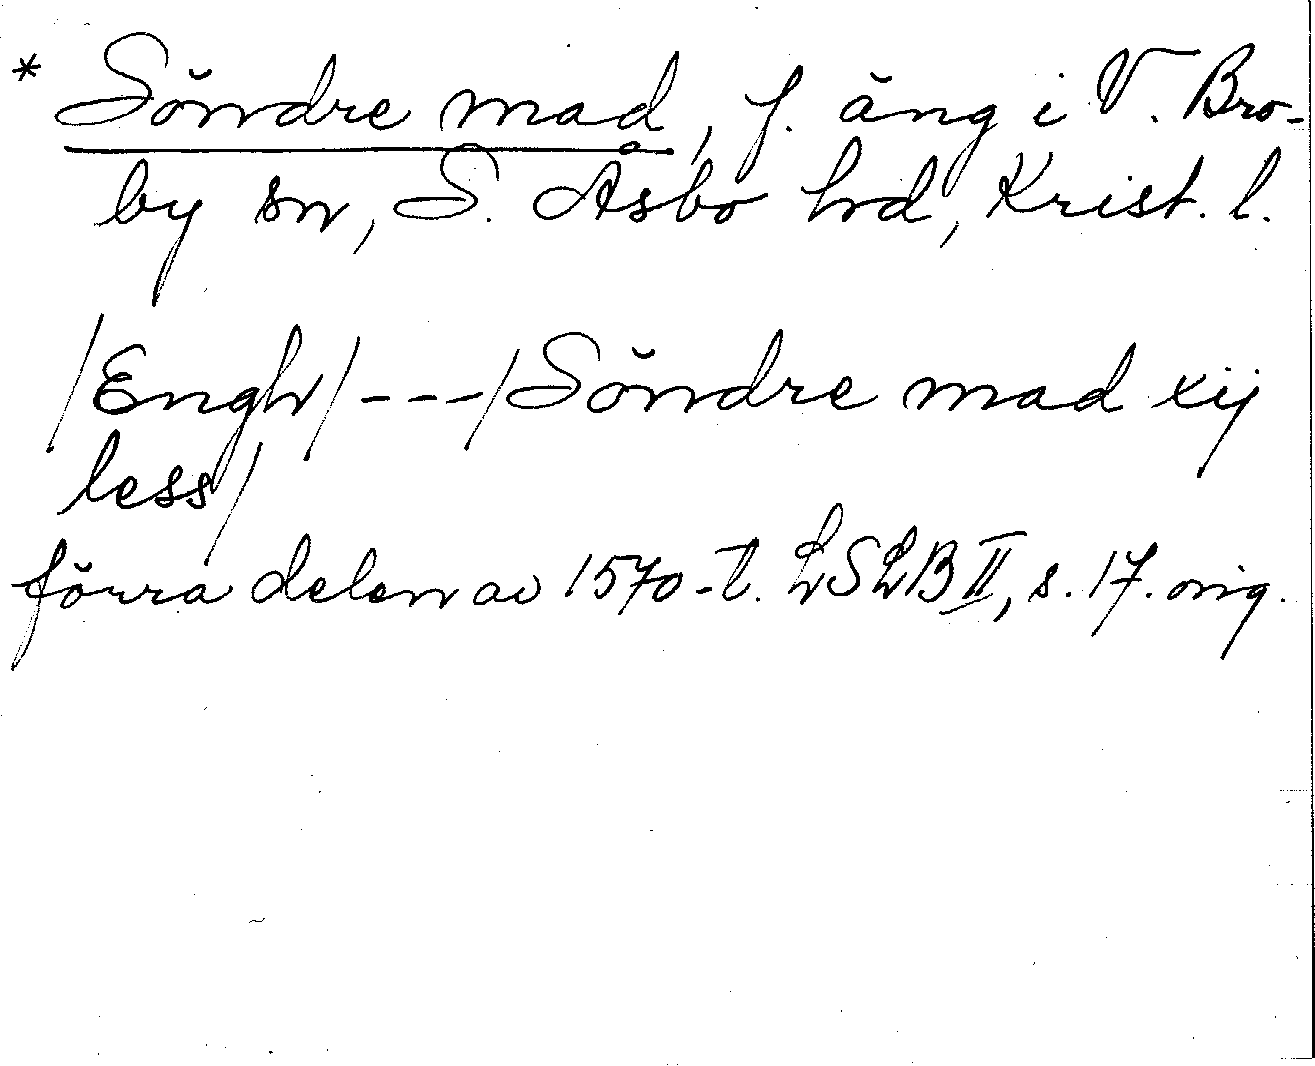 * Söndre mad, f. äng i V. Bro-
by sn, S. Åsbo hd, Krist. l.
/Engh/ ---/Söndre mad xij
less/
förra delen av 1570-t. LSLB II, s. 17. orig.